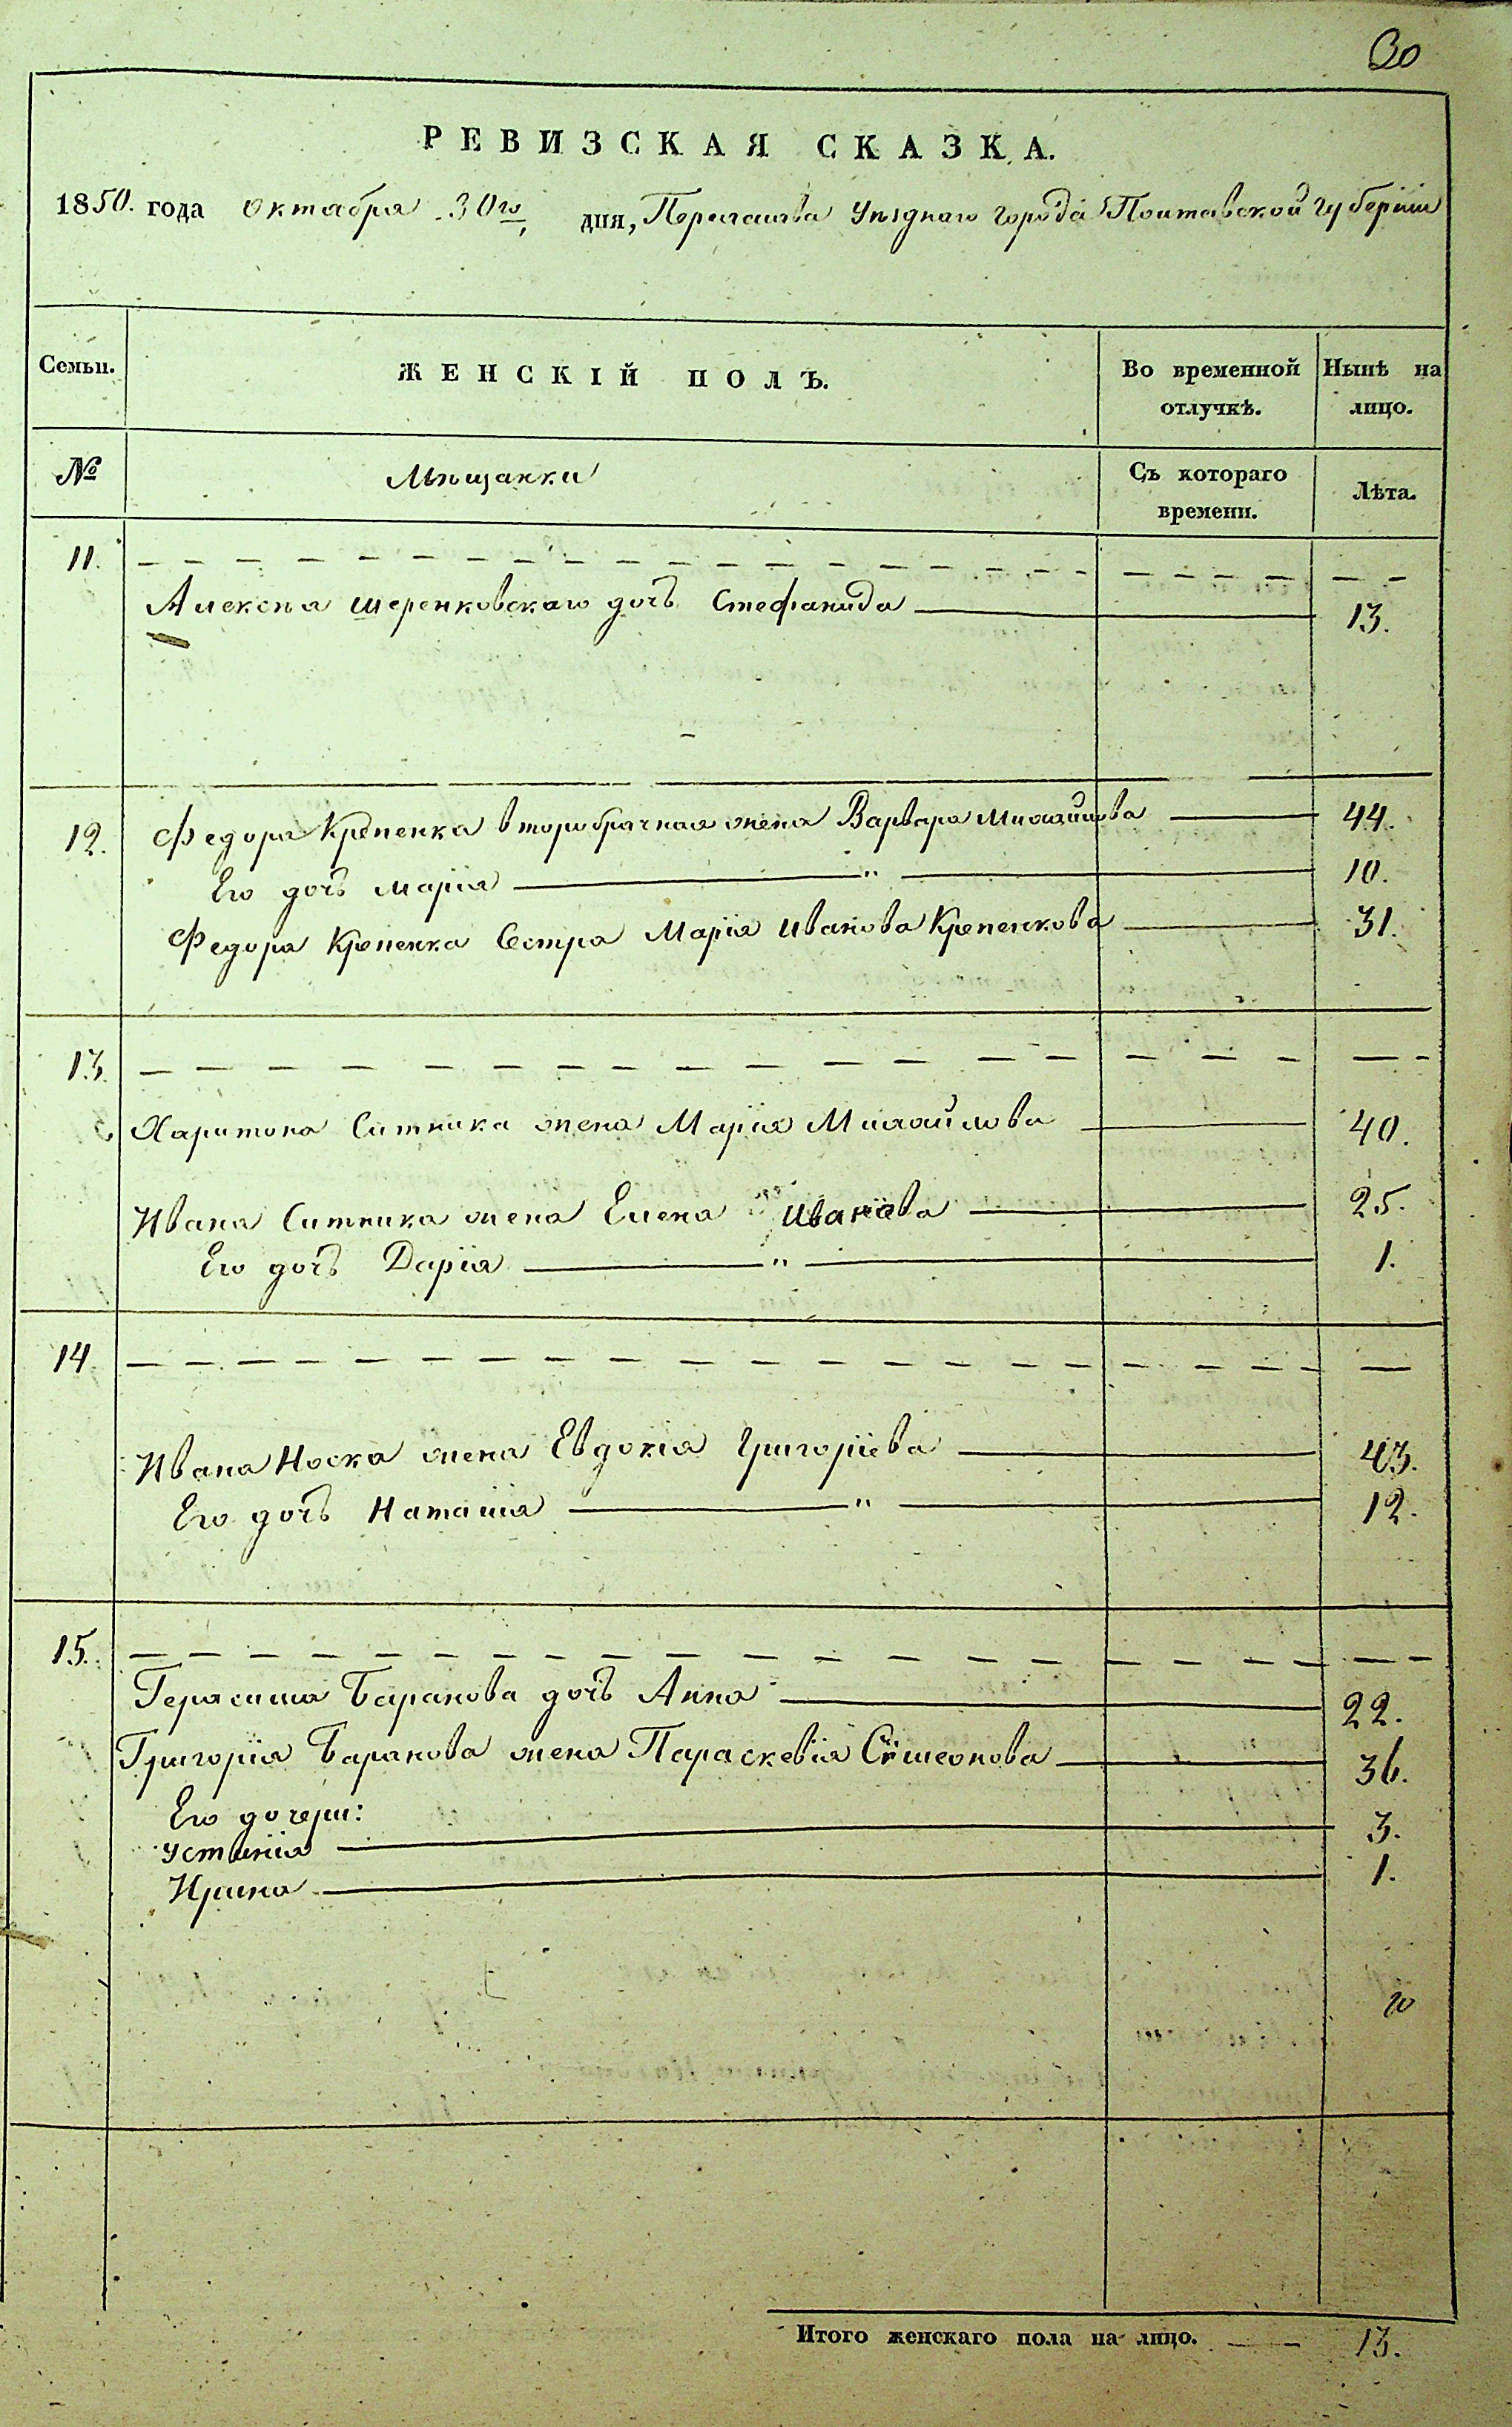 30
РЕВИЗСКАЯ СКАЗКА.
1850. года октября 30го дня, Переяслава Уѣзднаго города Полтавской губерніи
Семьи. ЖЕНСКІЙ ПОЛЪ. Во временной отлучкѣ. Нынѣ на лицо.
№ Мѣщанки Съ котораго времени. Лѣта.
11.
Алексѣя Шеренковскаго дочь Стефанида 13.
12. Федора Крепенка второбрачная жена Варвара Михайлова 44.
Его дочь Марія " 10.
Федора Крепенка Сестра Марія Иванова Крепенкова 31.
13.
Харитона Ситника жена Марія Михайлова 40.
Ивана Ситника жена Елена Иванова 25.
Его дочь Дарія " 1.
14
Ивана Носка жена Евдокія Григоріева 43.
Его дочь Наталія " 12.
15.
Герасима Баранова дочь Анна 22.
Григорія Баранова жена Параскевія Симеонова 36.
Его дочери:
Устинія 3.
Ирина 1.
Итого женскаго пола на лицо. 13.